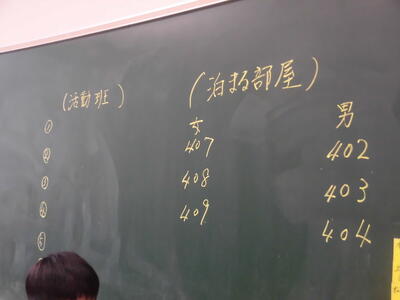 (活動班)
①
②
③
④
⑤
(泊まる部屋)
女
407
408
409
男
402
403
404